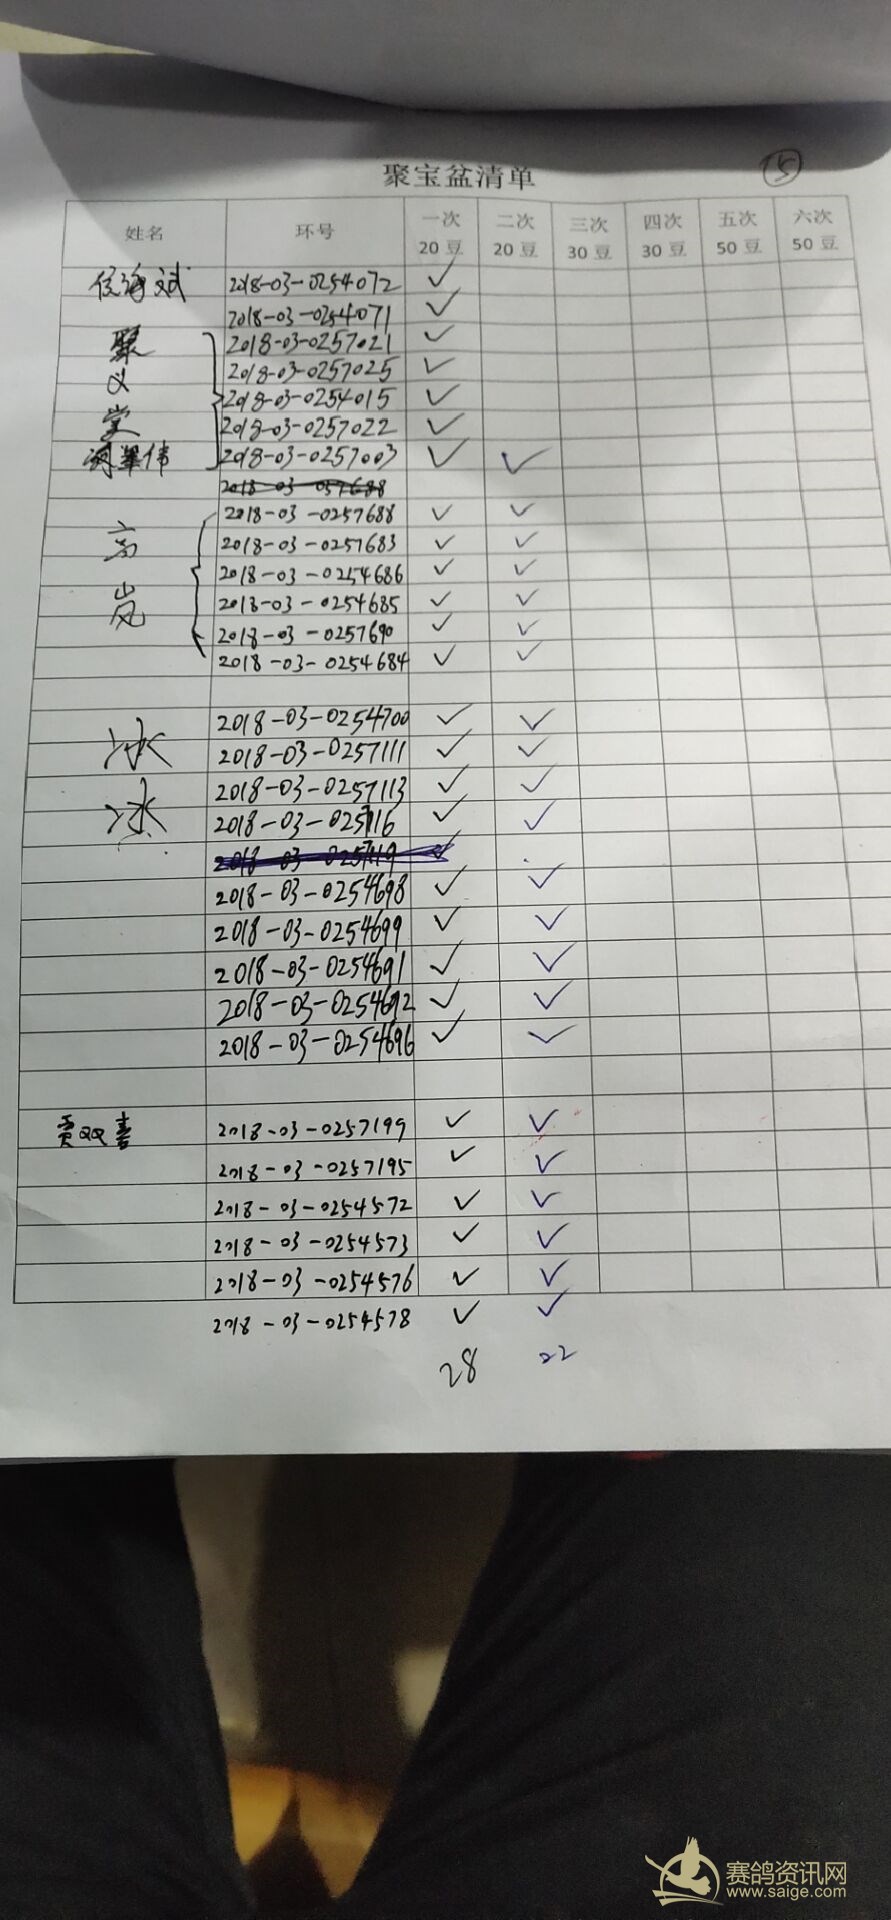 聚宝盆清单 15
姓名 环号 一次 二次 三次 四次 五次 六次
20豆 20豆 30豆 30豆 50豆 50豆
2018-03-0254072 ✓
2018-03-0254071 ✓
聚 2018-03-0257021 ✓
义 2018-03-0257025 ✓
2018-03-0254015 ✓
堂 2018-03-0257022 ✓
2018-03-0257003 ✓ ✓
2018-03-057688
2018-03-0257688 ✓ ✓
高 2018-03-0257683 ✓ ✓
2018-03-0254686 ✓ ✓
岚 2018-03-0254685 ✓ ✓
2018-03-0257690 ✓ ✓
2018-03-0254684 ✓ ✓
2018-03-0254700 ✓ ✓
冰 2018-03-0257111 ✓ ✓
2018-03-0257113 ✓ ✓
冰 2018-03-0257116 ✓ ✓
2018-03-0257119 ✓
2018-03-0254698 ✓ ✓
2018-03-0254699 ✓ ✓
2018-03-0254691 ✓ ✓
2018-03-0254692 ✓ ✓
2018-03-0254696 ✓ ✓
贾双喜 2018-03-0257199 ✓ ✓
2018-03-0257195 ✓ ✓
2018-03-0254572 ✓ ✓
2018-03-0254573 ✓ ✓
2018-03-0254576 ✓ ✓
2018-03-0254578 ✓ ✓
28 22
赛鸽资讯网
www.saige.com